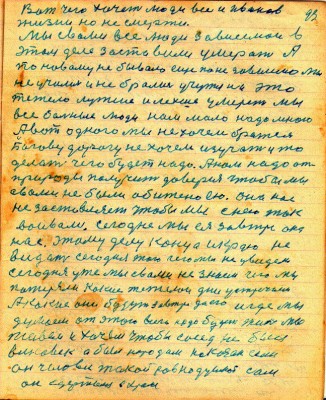 Вот чего хочет люди все и Иванов 92
жизни но не смерти.
Мы с вами все люди зависимое в
этом деле заставили умерат А
по новому не бывало еще пока зависимо мы
не училис и не брали учути на это
тежело лутше и легше умерет мы
все болные люди нам мало надо много
А вот одного мы не хочем братся
Богову дорогу не хочем изучат и то
делат чего будет надо. А нам надо от
природы получит доверия чтобы мы
с вами не были обижено ею. она нас
не заставляет чтобы мы с нею так
воивали, сегодне мы ея завтри она
нас, этому делу конца и краю не
видат сегодня того чего мы не увидем
сегодня уже мы с вами не знаем чего мы
потеряли какие тежелои дни устречали
А какие они будут завтри для нас и где мы
думаем от этого всего надо будит жит мы
живем и хочем чтобы сосед не был
виновек а был народам показан сам
он человек такой равнодушной сам
он